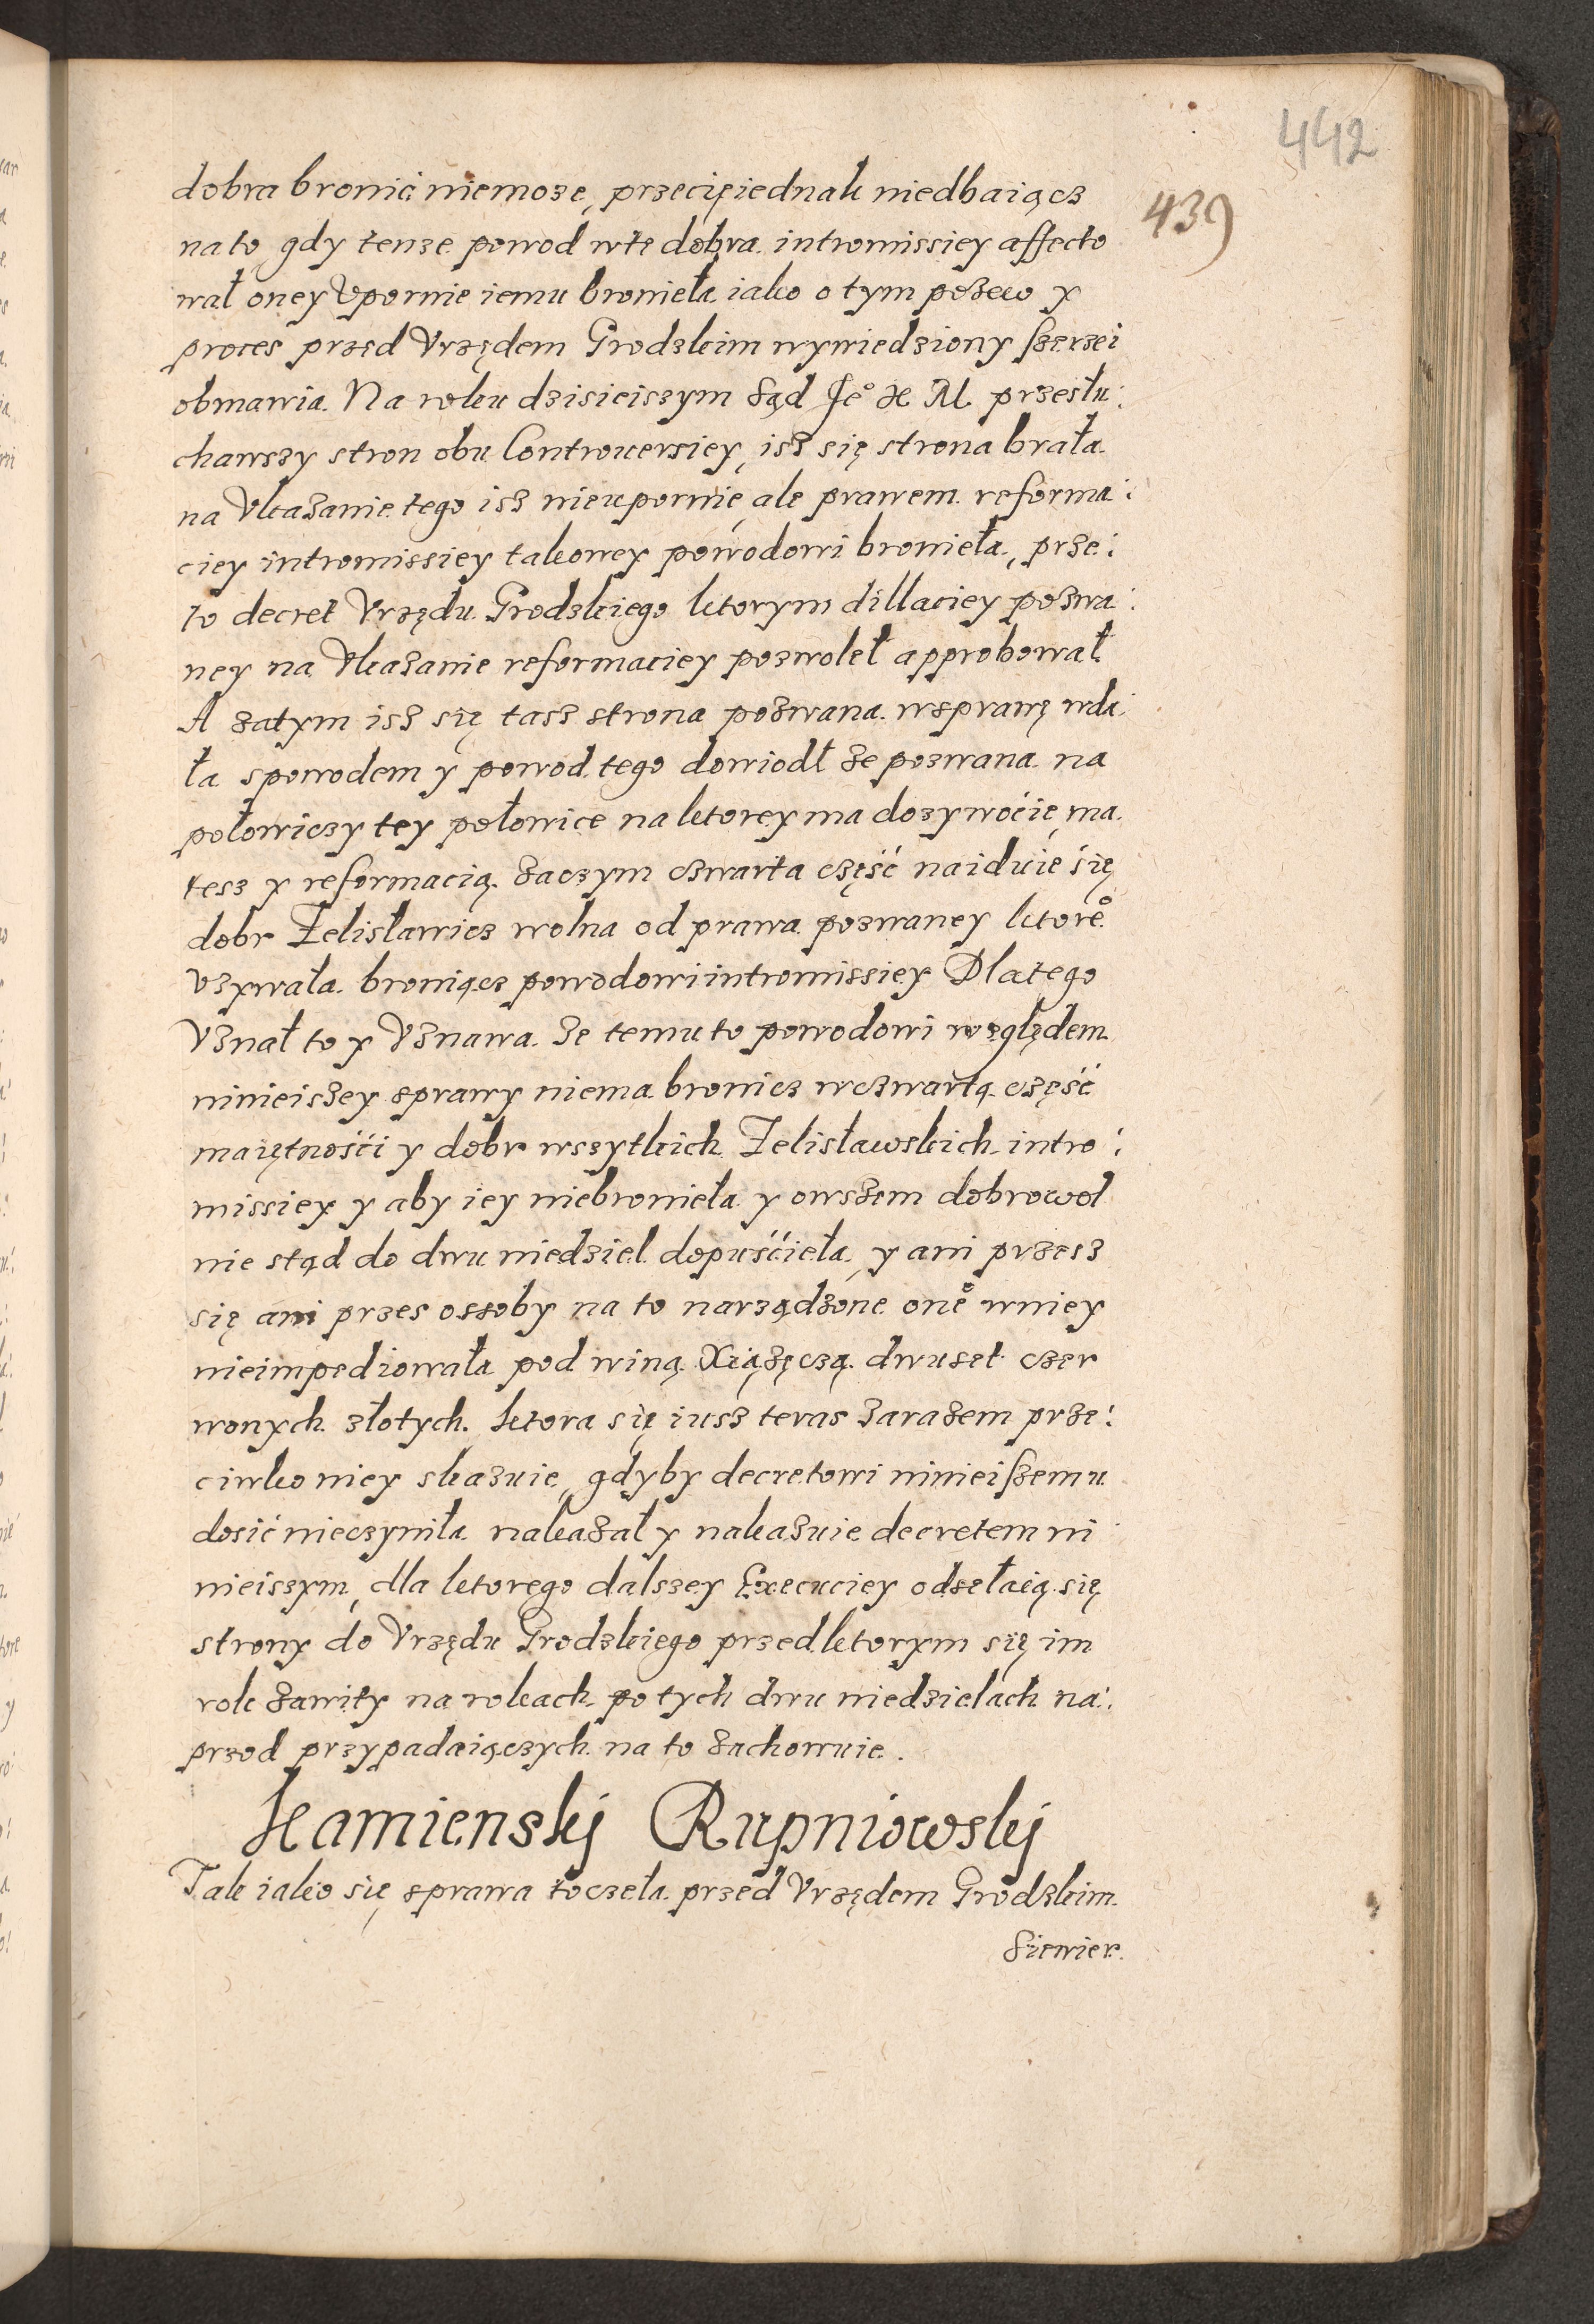 442
439
dobra bronić niemoze, przecięiednak niedbaiącz
na to gdy tenze powod wte dobra intromissiey affecto
wał oney Vpornie iemu bronieła iako o tym pozew y
proces przed Vrzędem Grodzkim wywiedziony szerzei
obmawia. Na roku dzisieiszym Sąd Je° X M przesłu:
chawszy stron obu Controuersiey, isz się strona brała
na Vkazanie tego isz nieupornie, ale prawem reforma:
ciey intromissiey takowey powodowi bronieła, prze:
to decret Vrzędu Grodzkiego ktorym dillaciey pozwa:
ney na Vkazanie reformaciey pozwoleł approbował.
A zatym isz się tasz strona pozwana wsprawę wda:
ła spowodem y powod tego dowiodł ze pozwana na
połowiczy tey połowice na ktorey ma dozywocie, ma
tesz y reformacią. Zaczym czwarta część naiduie się
dobr Zelisławicz wolna od prawa pozwaney ktore°
vzywała broniącz powodowi intromissiey Dlatego
Vznał to y Vznawa. Ze temu to powodowi względem
ninieiszey sprawy niema bronicz wczwartą część
maiętnośći y dobr wszytkich Zelisławskich intro:
missiey y aby iey niebronieła y owszem dobrowol
nie stąd do dwu niedziel dopuśćieła, y ani przesz
się ani przes ossoby na to narządzone one° wniey
nieimpediowała pod winą Xiązęczą dwuset czer
wonych złotych. ktora się iusz teras zarazem prze:
ciwko niey skazuie, gdyby decretowi ninieiszemu
dosić nieczyniła nakazał y nakazuie decretem ni
nieiszym, dla ktorego dalszey Execuciey odsełaią się
strony do Vrzędu Grodzkiego przedktorym się im
rok zawity na rokach po tych dwu niedzielach na:
przod przypadaiączych na to zachowuie.
Kamienskj Rupniowskj
Tak iako się sprawa toczeła przed Vrzędem Grodzkim
Siewier.